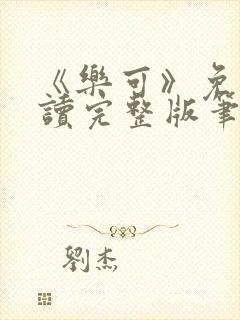 《樂可》免
讀完整版筆
劉杰